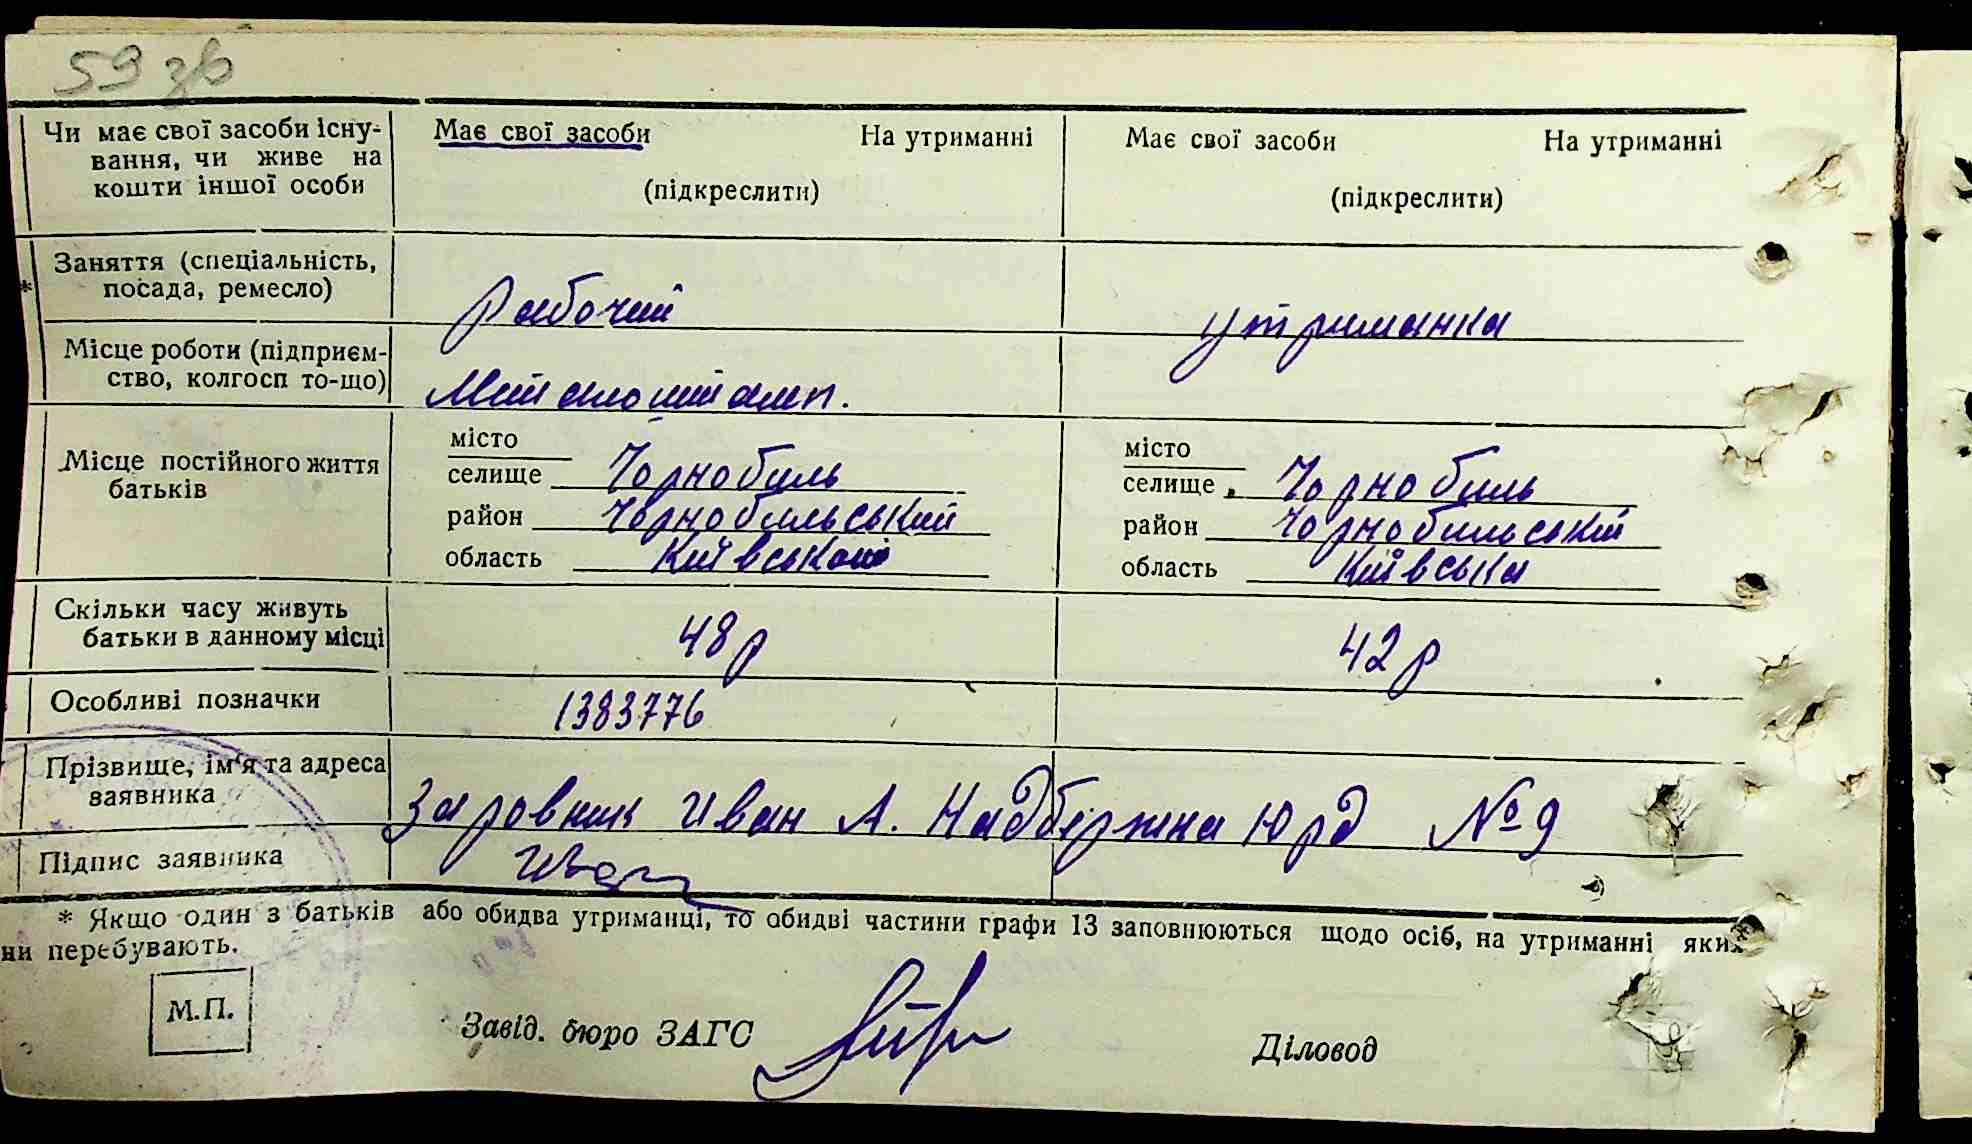 59 зв
Чи має свої засоби існу-
вання, чи живе на
кошти іншої особи
Має свої засоби На утриманні
(підкреслити)
Має свої засоби На утриманні
(підкреслити)
* Заняття (спеціальність,
посада, ремесло)
Рабочий
утриманка
Місце роботи (підприєм-
ство, колгосп то-що)
Місце постійного життя
батьків
місто
селище Чорнобиль
район Чорнобильський
область Київськой
місто
селище Чорнобиль
район Чорнобильський
область Київська
Скільки часу живуть
батьки в данному місці
48 р
42 р
Особливі позначки
1383776
Прізвище, ім'я та адреса
заявника
Заровник Иван А. Надбержна №9
Підпис заявника
* Якщо один з батьків або обидва утриманці, то обидві частини графи 13 заповнюються щодо осіб, на утриманні яких
ни перебувають.
М.П.
Завід. бюро ЗАГС
Діловод